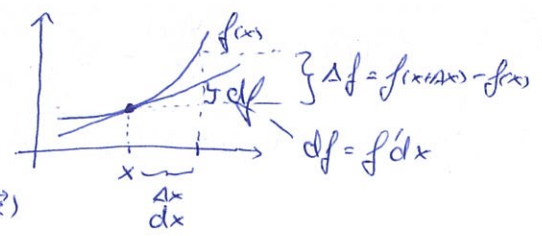 f(x)
} Δf = f(x+Δx) - f(x)
} df
df = f'dx
x
Δx
dx
?)